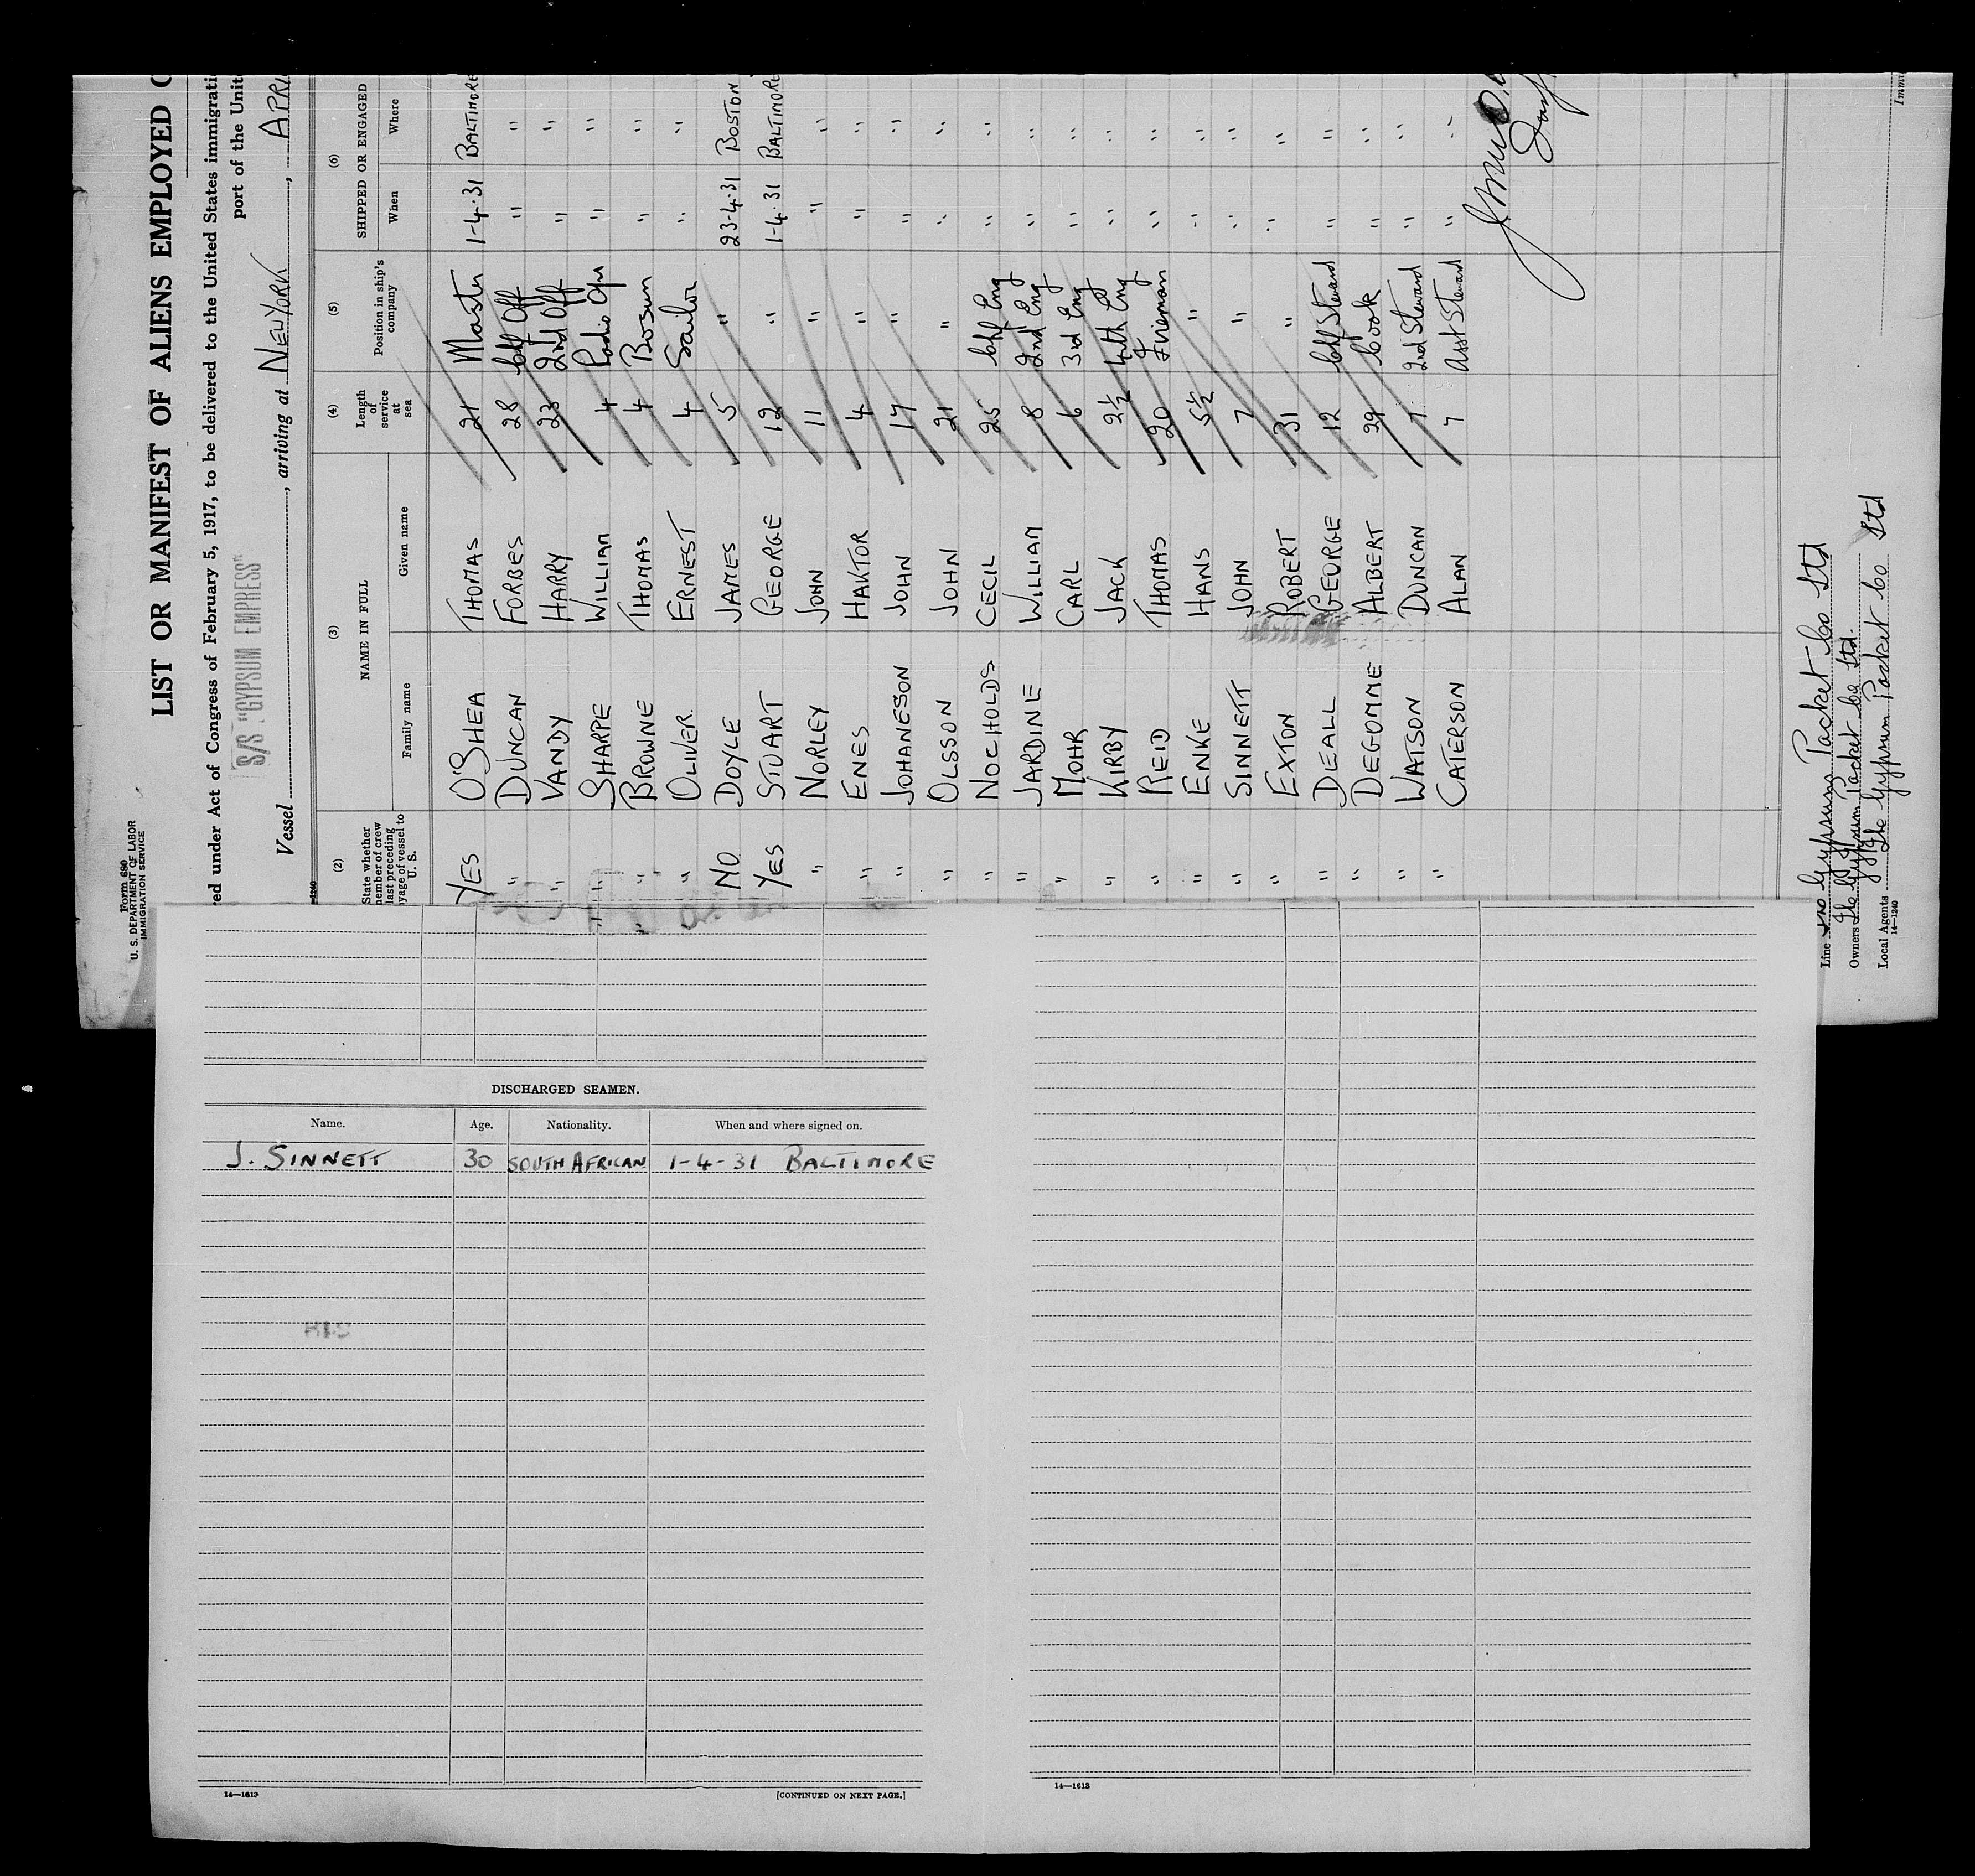 Form 680
U. S. DEPARTMENT OF LABOR
IMMIGRATION SERVICE
LIST OR MANIFEST OF ALIENS EMPLOYED
red under Act of Congress of February 5, 1917, to be delivered to the United States immigrati
port of the Unit
S/S "GYPSUM EMPRESS"
Vessel , arriving at NEW YORK , APRI
14—1240
(2) (3) (4) (5) (6)
State whether member of crew last preceding voyage of vessel to U. S. NAME IN FULL Length of service at sea Position in ship's company SHIPPED OR ENGAGED
Family name Given name When Where
YES O'SHEA THOMAS 21 Master 1-4-31 BALTIMORE
" DUNCAN FORBES 28 Chf Off " "
" VANDY HARRY 23 2nd Off " "
" SHARPE WILLIAM 4 Radio Opr " "
" BROWNE THOMAS 4 Bosun " "
" OLIVER ERNEST 4 Sailor " "
NO DOYLE JAMES 5 " 23-4-31 BOSTON
YES STUART GEORGE 12 " 1-4-31 BALTIMORE
" NORLEY JOHN 11 " " "
" ENES HAKTOR 4 " " "
" JOHANESON JOHN 17 " " "
" OLSSON JOHN 21 " " "
" NOCHOLDS CECIL 25 Chf Eng " "
" JARDINE WILLIAM 8 2nd Eng " "
" MOHR CARL 6 3rd Eng " "
" KIRBY JACK 2½ 4th Eng " "
" REID THOMAS 20 Fireman " "
" ENKE HANS 5½ " " "
" SINNETT JOHN 7 " " "
" EXTON ROBERT 31 " " "
" DEALL GEORGE 12 Chf Steward " "
" DEGOMME ALBERT 29 Cook " "
" WATSON DUNCAN 7 2nd Steward " "
" CATERSON ALAN 7 Asst Steward " "
Line Gypsum Packet Co Ltd
Owners The Gypsum Packet Co Ltd.
Local Agents The Gypsum Packet Co Ltd
14—1240
Immi
DISCHARGED SEAMEN.
Name. Age. Nationality. When and where signed on.
J. SINNETT 30 SOUTH AFRICAN 1-4-31 BALTIMORE
14—1613 [CONTINUED ON NEXT PAGE.]
14—1613